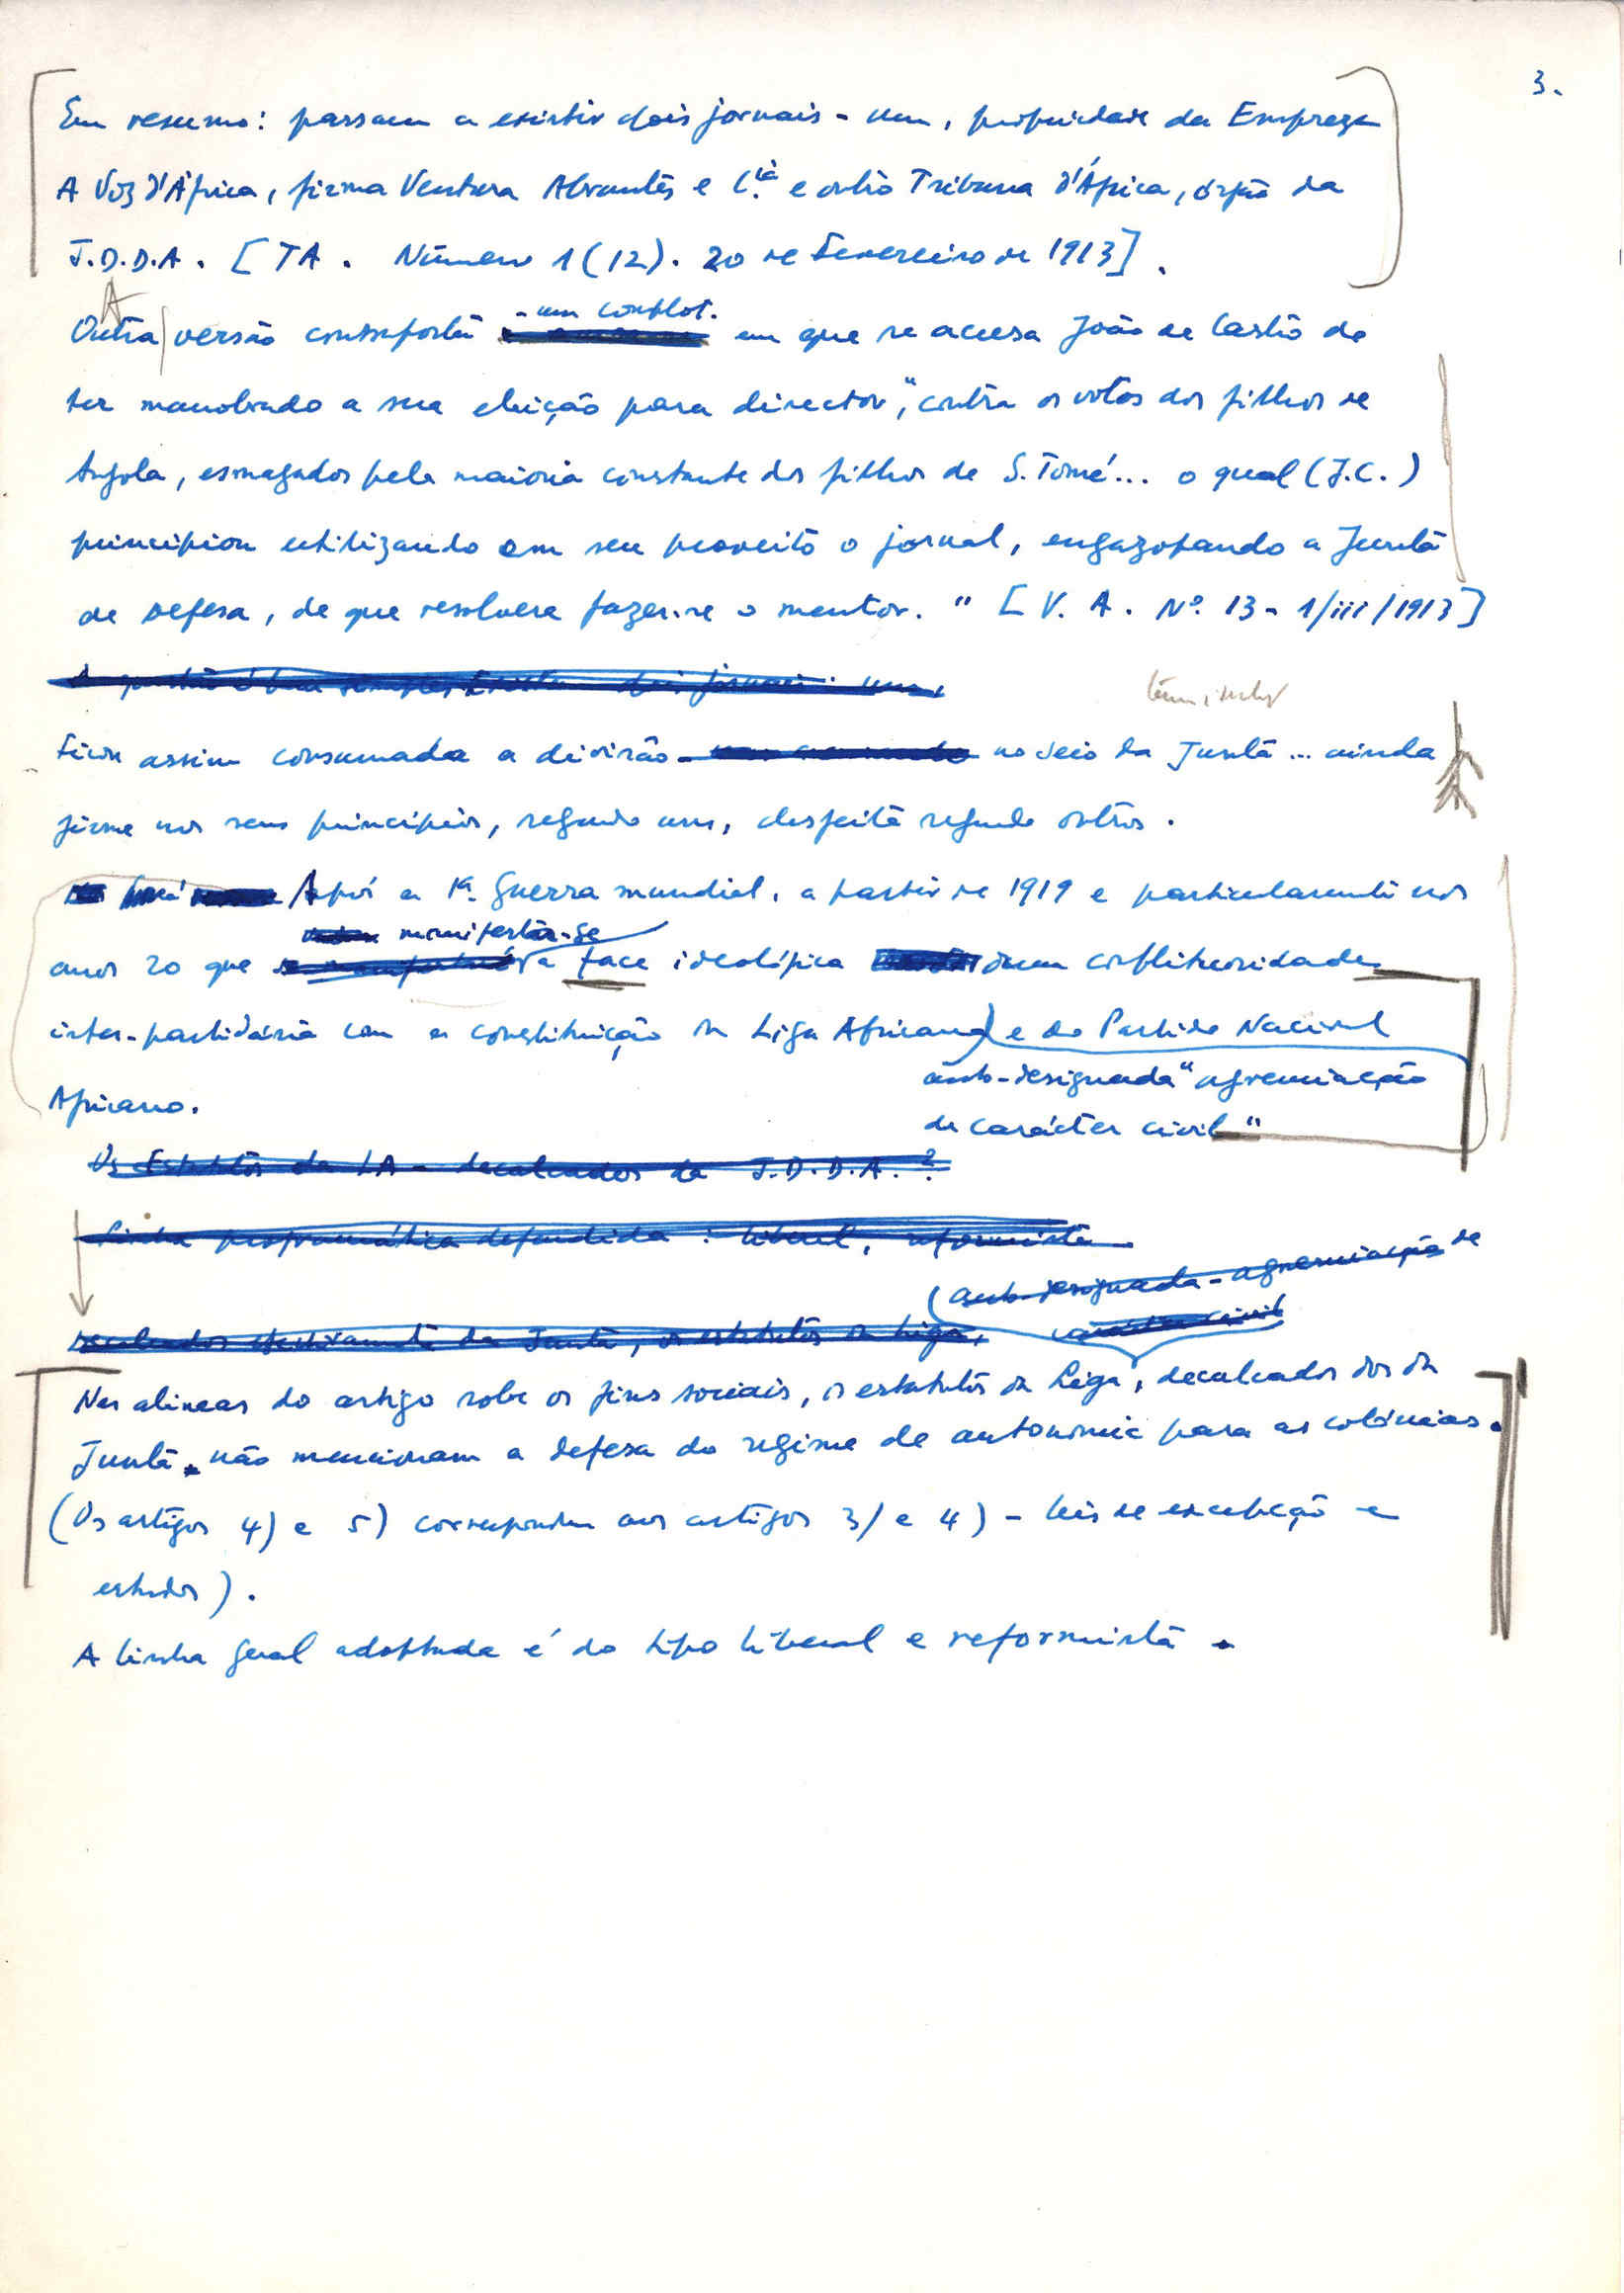 3.
Em resumo: passam a existir dois jornais - um, propriedade da Empreza
A Voz d'África, firma Ventura Abrantes e C.ia e outro Tribuna d'África, órgão da
J.D.D.A. [TA. Número 1 (12). 20 de Fevereiro de 1913].
A
Outra versão contraposta
- um complot.
em que se acusa João de Castro de
ter manobrado a sua eleição para director, "contra os votos dos filhos de
Angola, esmagados pela maioria constante dos filhos de S. Tomé... o qual (J.C.)
principiou utilizando em seu proveito o jornal, engazopando a Junta
de Defesa, de que resolvera fazer-se o mentor." [V. A. Nº. 13 - 1/iii/1913]
A questão é bem simples: Existem dois jornais: um,
Ficou assim consumada a divisão no seio da Junta... ainda
firme nos seus princípios, segundo uns, desfeita segundo outros.
Após a 1ª. Guerra mundial, a partir de 1919 e particularmente nos
manifestar-se
anos 20 que a face ideológica duma conflituosidade
inter-partidária com a constituição da Liga Africana e do Partido Nacional
auto-designada "agremiação
Africano.
de carácter civil"
Os Estatutos da LA - decalcados da J.D.D.A.?
Linha programática defendida: liberal, reformista
(auto-designada - agremiação de
carácter civil
decalcados da Junta, os estatutos da Liga,
Nas alíneas do artigo sobre os fins sociais, os estatutos da Liga, decalcados dos da
Junta não mencionam a defesa do regime de autonomia para as colónias.
(Os artigos 4) e 5) correspondem aos artigos 3) e 4) - leis de excepção e
estudos).
A linha geral adoptada é do tipo liberal e reformista.